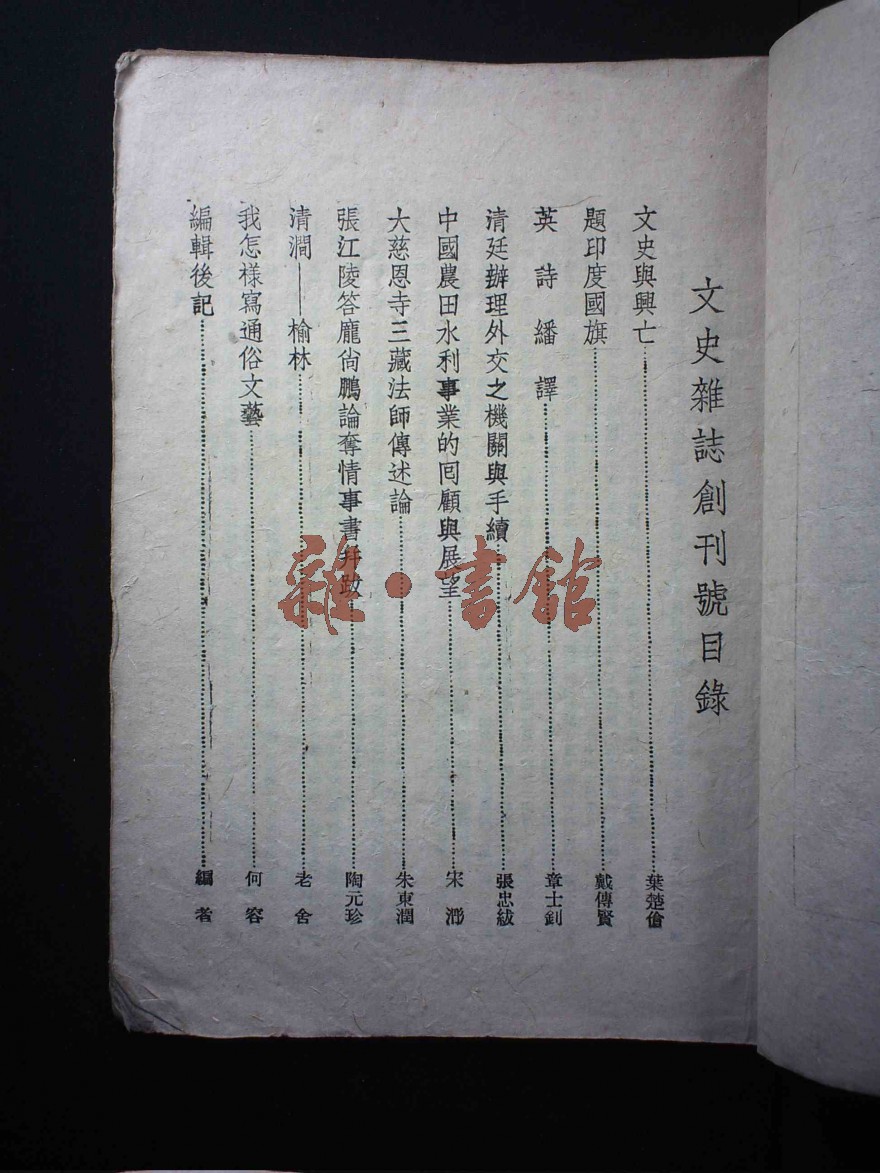 文史雜誌創刊號目錄
文史與興亡……葉楚傖
題印度國旗……戴傳賢
英詩繙譯……章士釗
清廷辦理外交之機關與手續……張忠紱
中國農田水利事業的囘顧與展望……宋㴲
大慈恩寺三藏法師傳述論……朱東潤
張江陵答龐尙鵬論奪情事書并跋……陶元珍
清澗——榆林……老舍
我怎樣寫通俗文藝……何容
編輯後記……編者
雜·書館